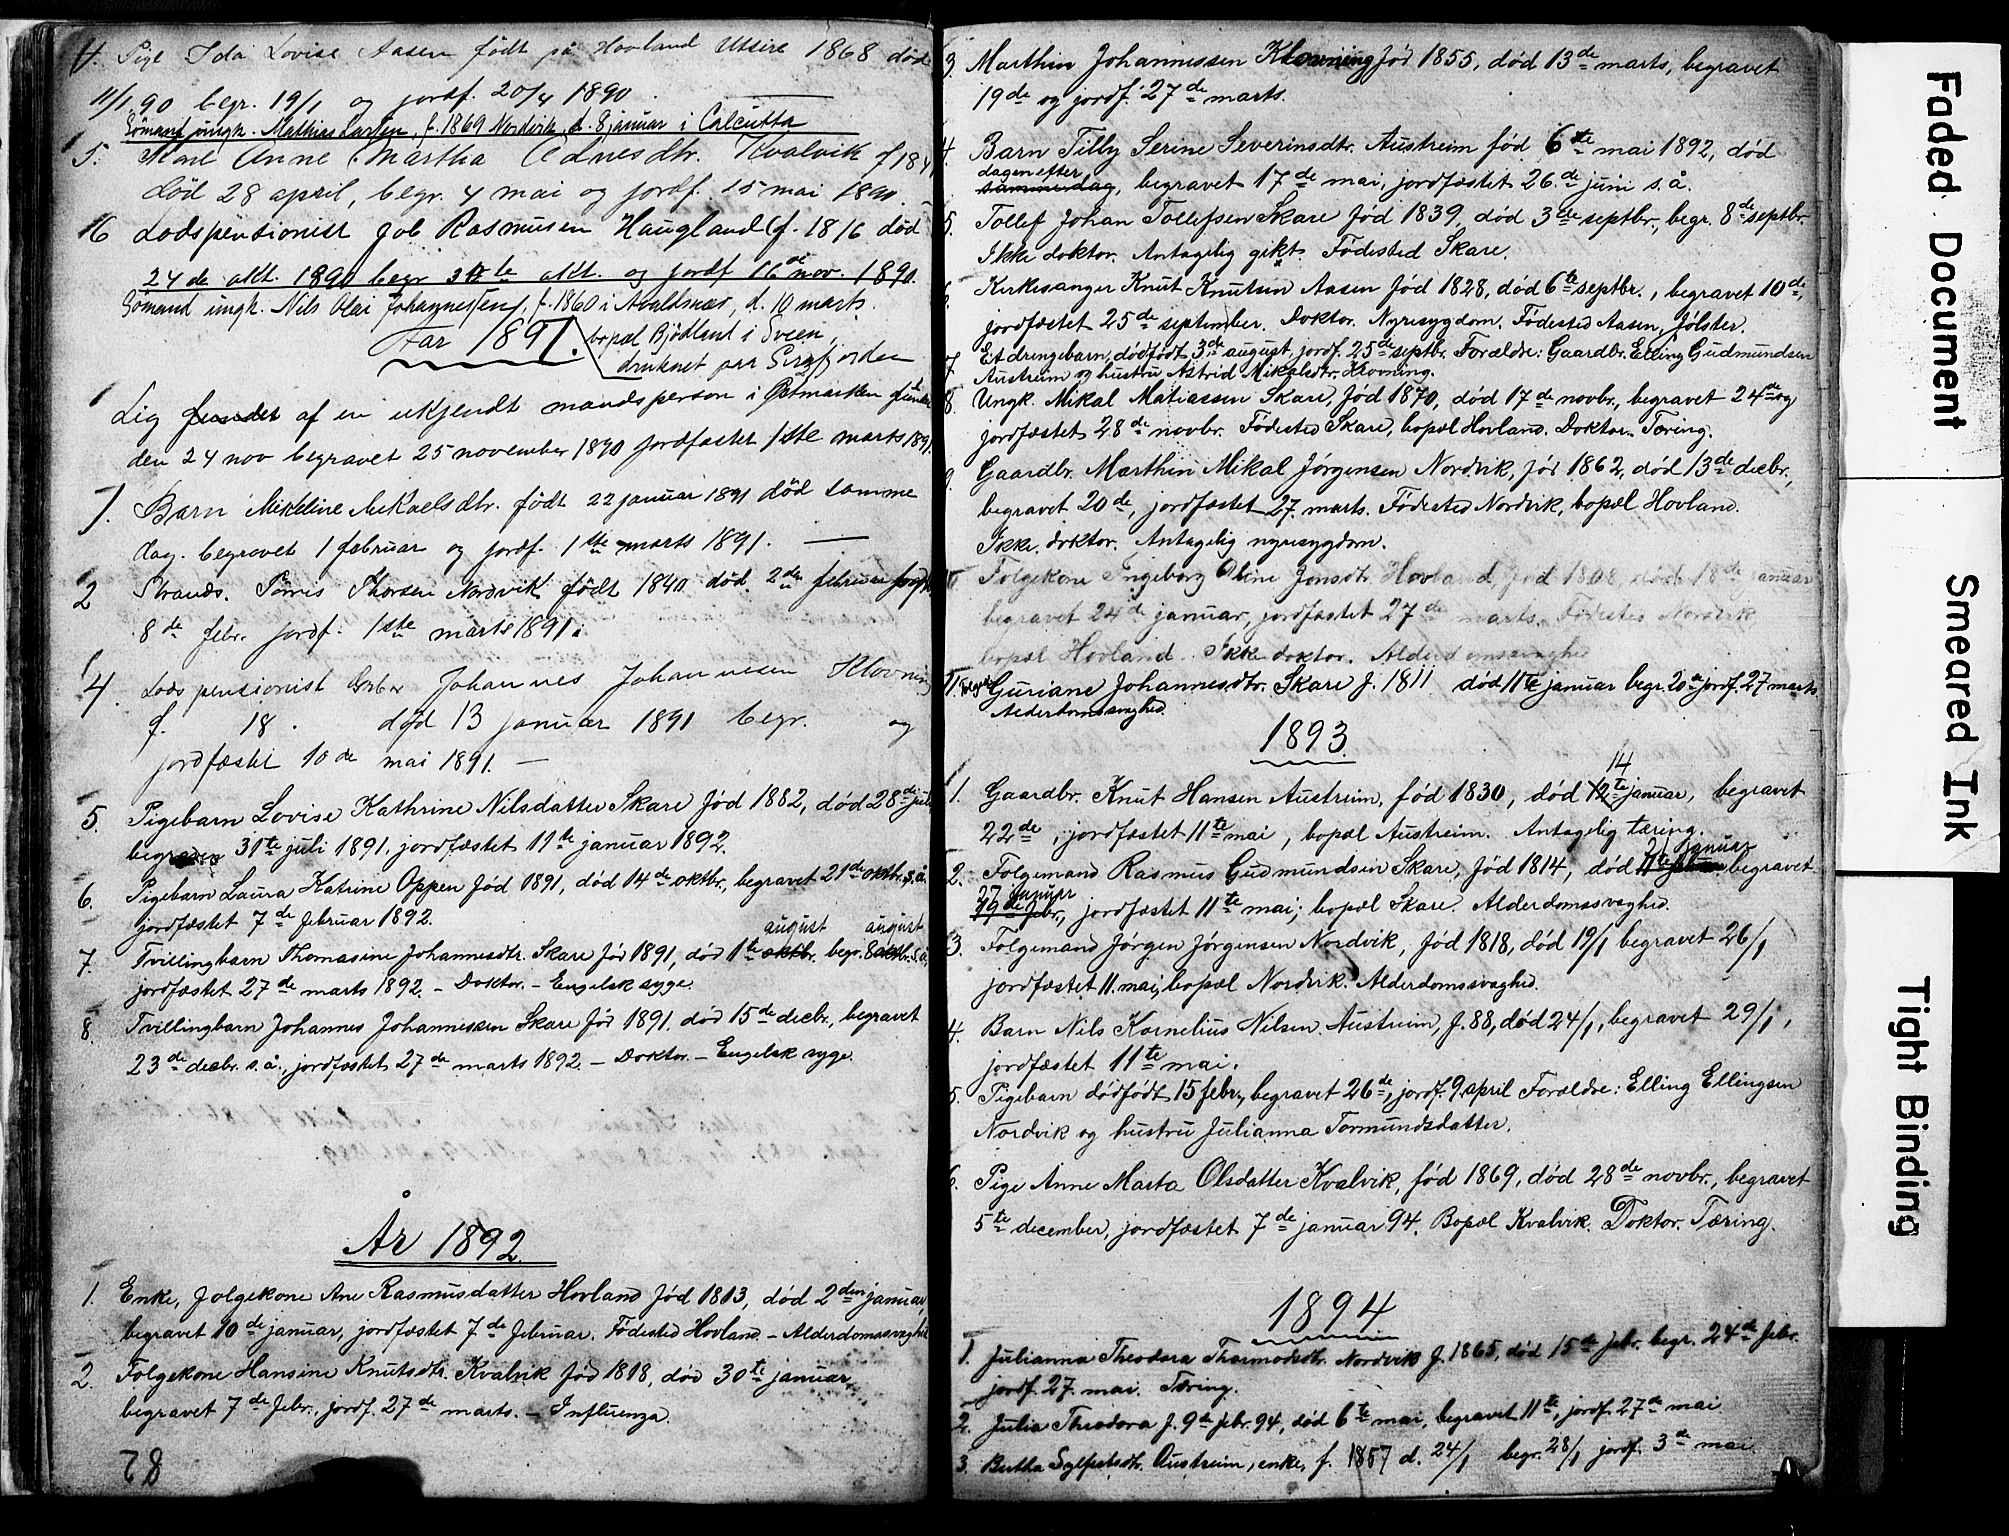 4. Pige Ida Lovise Aasen født på Hovland Utsire 1868 død
11/1 90 begr. 19/1 og jordf. 20/4 1890.
Sømand ungk. Mathias Larsen, f. 1869 Nordvik, d. 8 januar i Calcutta
5. Kone Anne Martha Ednesdtr. Kvalvik f 184
død 28 april, begr. 4 mai og jordf. 15 mai 1890.
16 Lodspensionist Job Rasmusen Haugland (f. 1816 død
24 de okt. 1890 begr. 31te okt. og jordf 16 de nov. 1890.
Sømand ungk. Nils Olai Johannessen, f. 1860 i Avaldsnæs, d. 10 marts.
Faar 1891. bopæl Bjødland i Sveen,
druknet paa
Lig fundet af en ukjendt mandsperson i Østmarken
den 24 nov begravet 25 november 1890 jordfæstet 1ste marts 1891
1. Barn Mikeline Mikaelsdtr. født 22 januar 1891 død samme
dag. begravet 1 februar og jordf. 1ste marts 1891. —
2 Strands. Tørris Thorsen Nordvik født 1840 død 2den februar
8de febr. jordf. 1ste marts 1891.
4. Lods pensionist Johannes Johannesen Klovning
f. 18 . død 13 januar 1891 begr. og
jordfæstet 10de mai 1891. —
5. Pigebarn Lovise Kathrine Nilsdatter Skare fød 1882, død 28de juli
begraven 31te juli 1891, jordfæstet 11te januar 1892.
6. Pigebarn Laura Katrine Oppen fød 1891, død 14de oktbr., begravet 21de oktbr. s.å.
jordfæstet 7de februar 1892.
august august
7. Tvillingbarn Thomasine Johannesdtr. Skare fød 1891, død 1te oktbr. begr. 8 oktbr. s.å,
jordfæstet 27de marts 1892. – Doktor. – Engelsk syge.
8. Tvillingbarn Johannes Johannessen Skare fød 1891, død 15de decbr., begravet
23de decbr. s.å., jordfæstet 27de marts 1892. – Doktor. – Engelsk syge.
År 1892.
1. Enke, folgekone Ane Rasmusdatter Hovland fød 1813, død 2den januar,
begravet 10de januar, jordfæstet 7de februar. Fødested Hovland. – Alderdomssvaghed
2. Folgekone Hansine Knutsdtr. Kvalvik fød 1818, død 30te januar
begravet 7de febr., jordf. 27de marts. – Influenza.
78
3. Marthin Johannessen Klovning fød 1855, død 13de marts, begravet
19de og jordf. 27de marts.
4. Barn Tilby Serine Severinsdtr. Austreim fød 6te mai 1892, død
dagen efter
sammedag, begravet 17de mai, jordfæstet 26.de juni s.å.
5. Tollef Johan Tollefsen Skare fød 1839, død 3de septbr., begr. 8de septbr.
Ikke doktor. Antagelig gikt. Fødested Skare.
6. Kirkesanger Knut Knutsen Aasen fød 1828, død 6te septbr., begravet 10de,
jordfæstet 25de september. Doktor. Nyresygdom. Fødested Aasen, Jølster.
7 Et drengebarn, dødfødt 3de august, jordf. 25de septbr. Forældre: Gaardbr. Elling Gudmundsen
Austreim og hustru Astrid Mikalsdtr. Klovning.
8. Ungk. Mikal Matiassen Skare, fød 1870, død 17de novbr., begravet 24de og
jordfæstet 28de novbr. Fødested Skare, bopæl Hovland. Doktor. Tæring.
9. Gaardbr. Marthin Mikal Jørgensen Nordvik, fød 1862, død 13de decbr.,
begravet 20de, jordfæstet 27. marts. Fødested Nordvik, bopæl Hovland.
Ikke doktor. Antagelig nyresygdom.
10 Folgekone Ingeborg Oline Jonsdtr. Hovland, fød 1808, død 18de januar
begravet 24d januar, jordfæstet 27de marts. Fødested Nordvik,
bopæl Hovland. Ikke doktor. Alderdomssvaghed
11. Guriane Johannesdtr. Skare f. 1811 død 11te januar begr. 20de jordf. 27 marts.
Alderdomssvaghed.
1893.
14
1. Gaardbr. Knut Hansen Austreim, fød 1830, død 12te januar, begravet
22de, jordfæstet 11te mai, bopæl Austreim. Antagelig tæring.
21 januar
2. Folgemand Rasmus Gudmundsen Skare, fød 1814, død 11te febr. begravet
27 januar
19de febr., jordfæstet 11te mai; bopæl Skare. Alderdomssvaghed.
3. Folgemand Jørgen Jørgensen Nordvik, fød 1818, død 19/1 begravet 26/1
jordfæstet 11. mai, bopæl Nordvik. Alderdomssvaghed.
4. Barn Nils Kornelius Nilsen Austreim, f. 88, død 24/1, begravet 29/1,
jordfæstet 11te mai.
5. Pigebarn dødfødt 15 febr., begravet 26de, jordf. 9 april Forældre: Elling Ellingsen
Nordvik og hustru Julianna Tormundsdatter.
6. Pige Anne Marta Olsdatter Kvalvik, fød 1869, død 28de novbr., begravet
5te december, jordfæstet 7de januar 94. Bopæl Kvalvik. Doktor. Tæring.
1894
1. Julianna Theodora Thormodsdtr. Nordvik f. 1865, død 15de febr. begr. 24de febr.
jordf. 27. mai. Tæring.
2. Julia Theodora f. 9de febr. 94, død 6te mai, begravet 11te, jordf. 27de mai
3. Bertha Sylfestsdtr. Austreim, enke, f. 1857 d. 24/1 begr. 28/1 jordf. 3de mai
Faded Document
Smeared Ink
Tight Binding